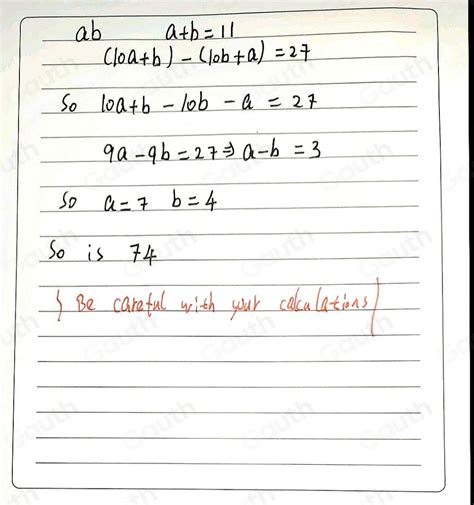 ab a+b=11
(10a+b) - (10b+a) = 27
So 10a+b - 10b - a = 27
9a-9b=27⇒ a-b = 3
So a=7 b=4
So is 74
} Be careful with your calculations